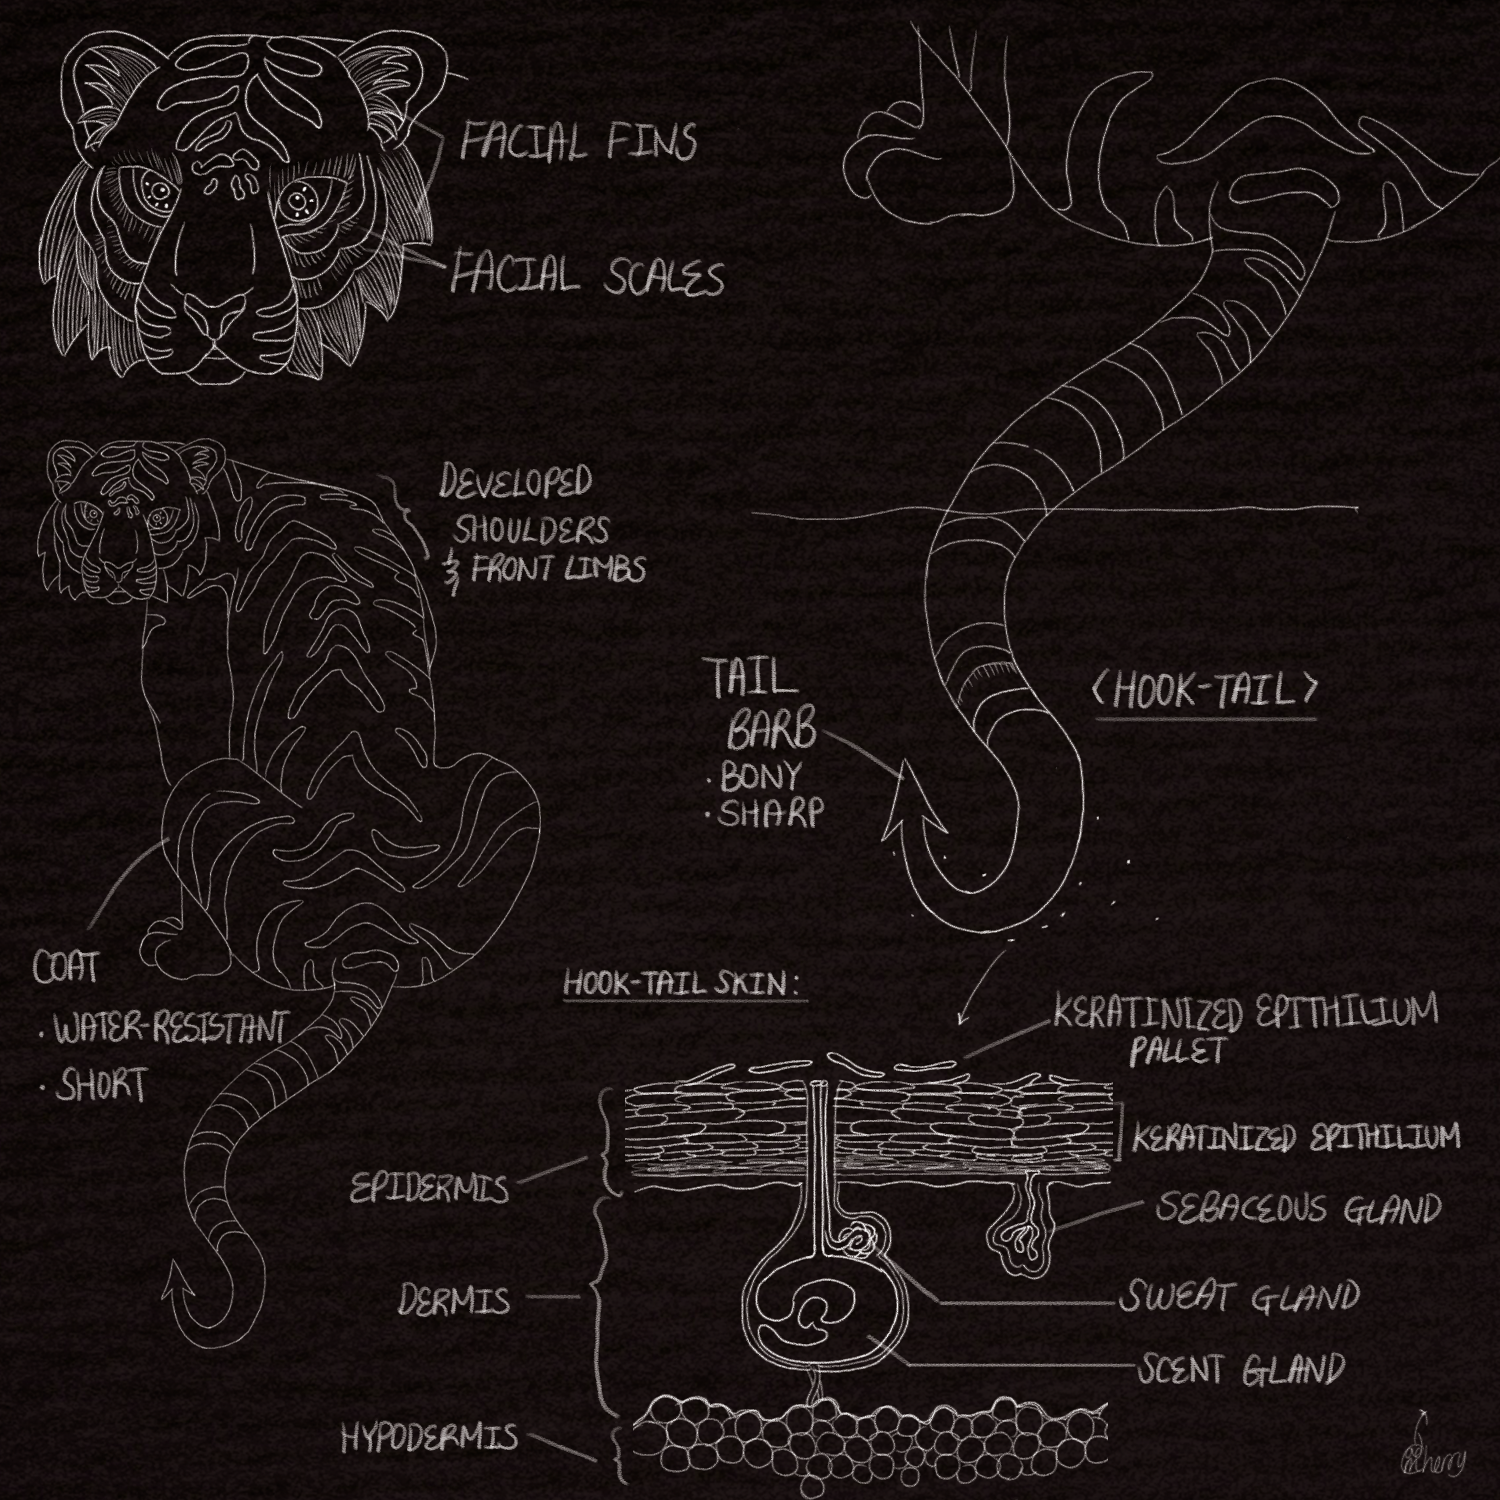 FACIAL FINS
FACIAL SCALES
DEVELOPED
SHOULDERS
& FRONT LIMBS
TAIL
BARB
· BONY
· SHARP
<HOOK-TAIL>
COAT
· WATER-RESISTANT
· SHORT
HOOK-TAIL SKIN:
KERATINIZED EPITHILIUM
PALLET
KERATINIZED EPITHILIUM
EPIDERMIS
SEBACEOUS GLAND
DERMIS
SWEAT GLAND
SCENT GLAND
HYPODERMIS